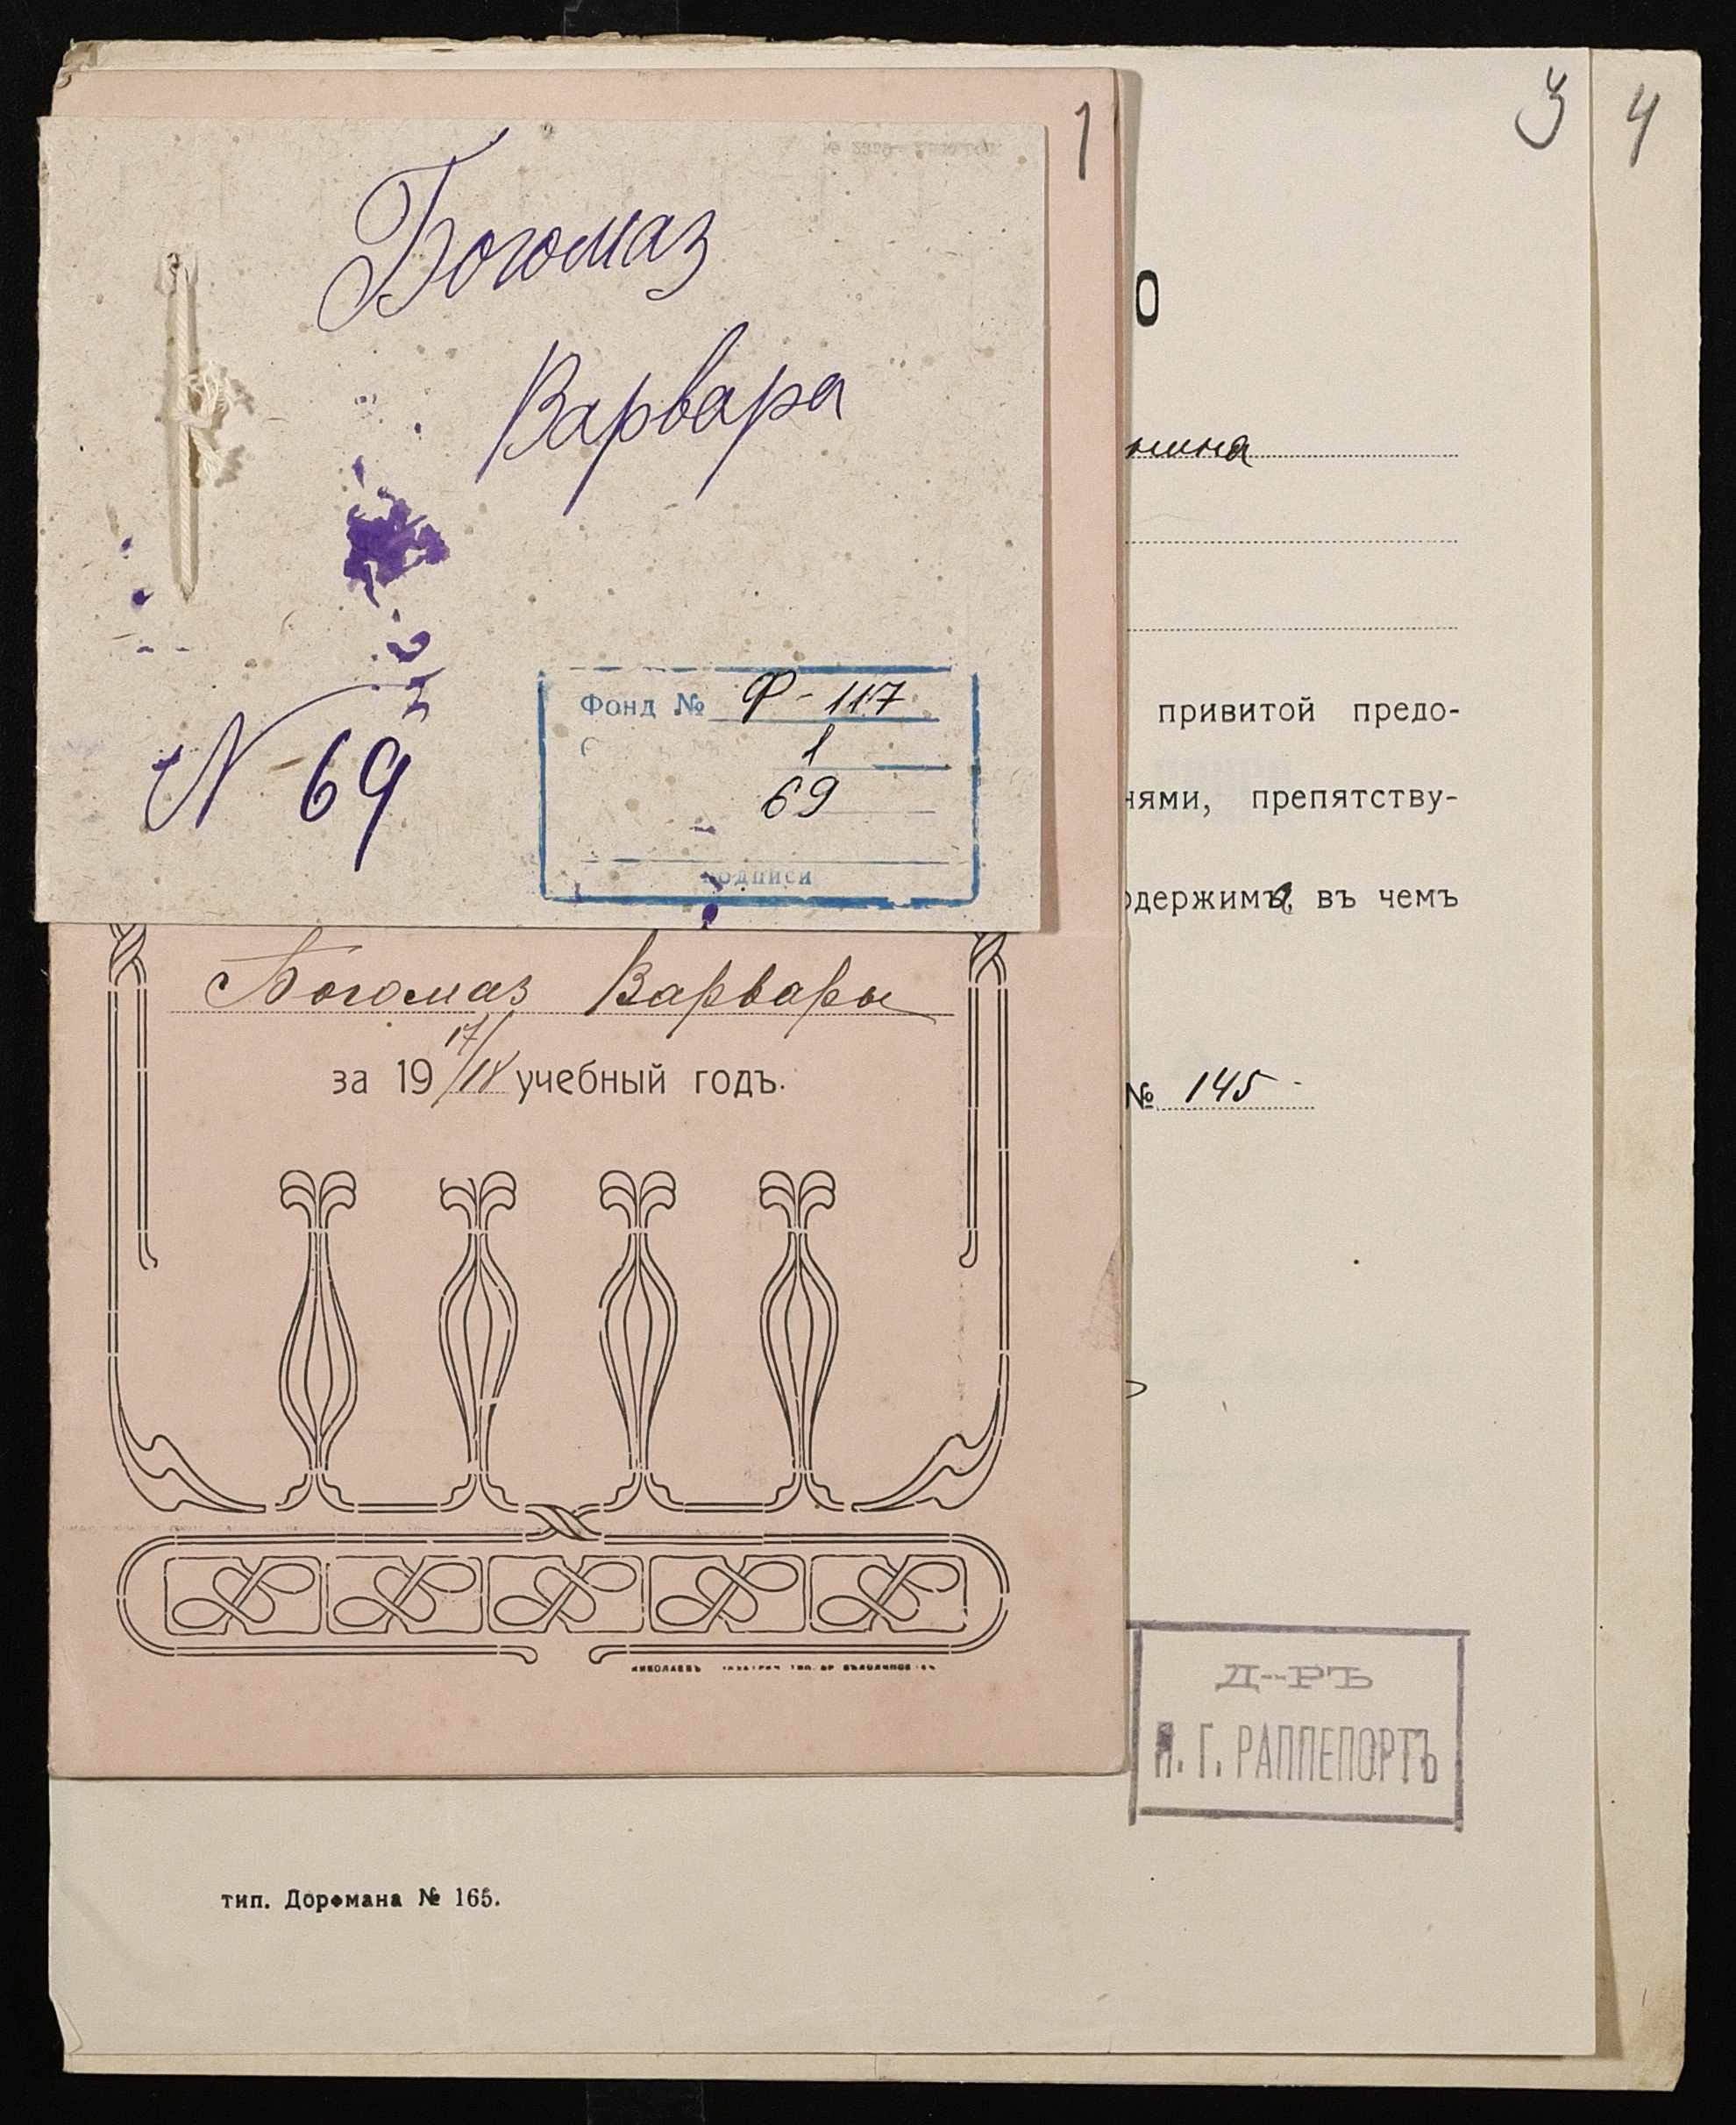 1
3
4
Богомаз
Варвара
N 69
Фонд № Ф-117
1
69
подписи
Богомаз Варвары
за 19 17/18 учебный годъ.
НИКОЛАЕВЪ
О
нина
привитой предо-
нями, препятству-
одержима, въ чемъ
№ 145
Д-РЪ
Г. РАППЕПОРТЪ
тип. Дорфмана № 165.